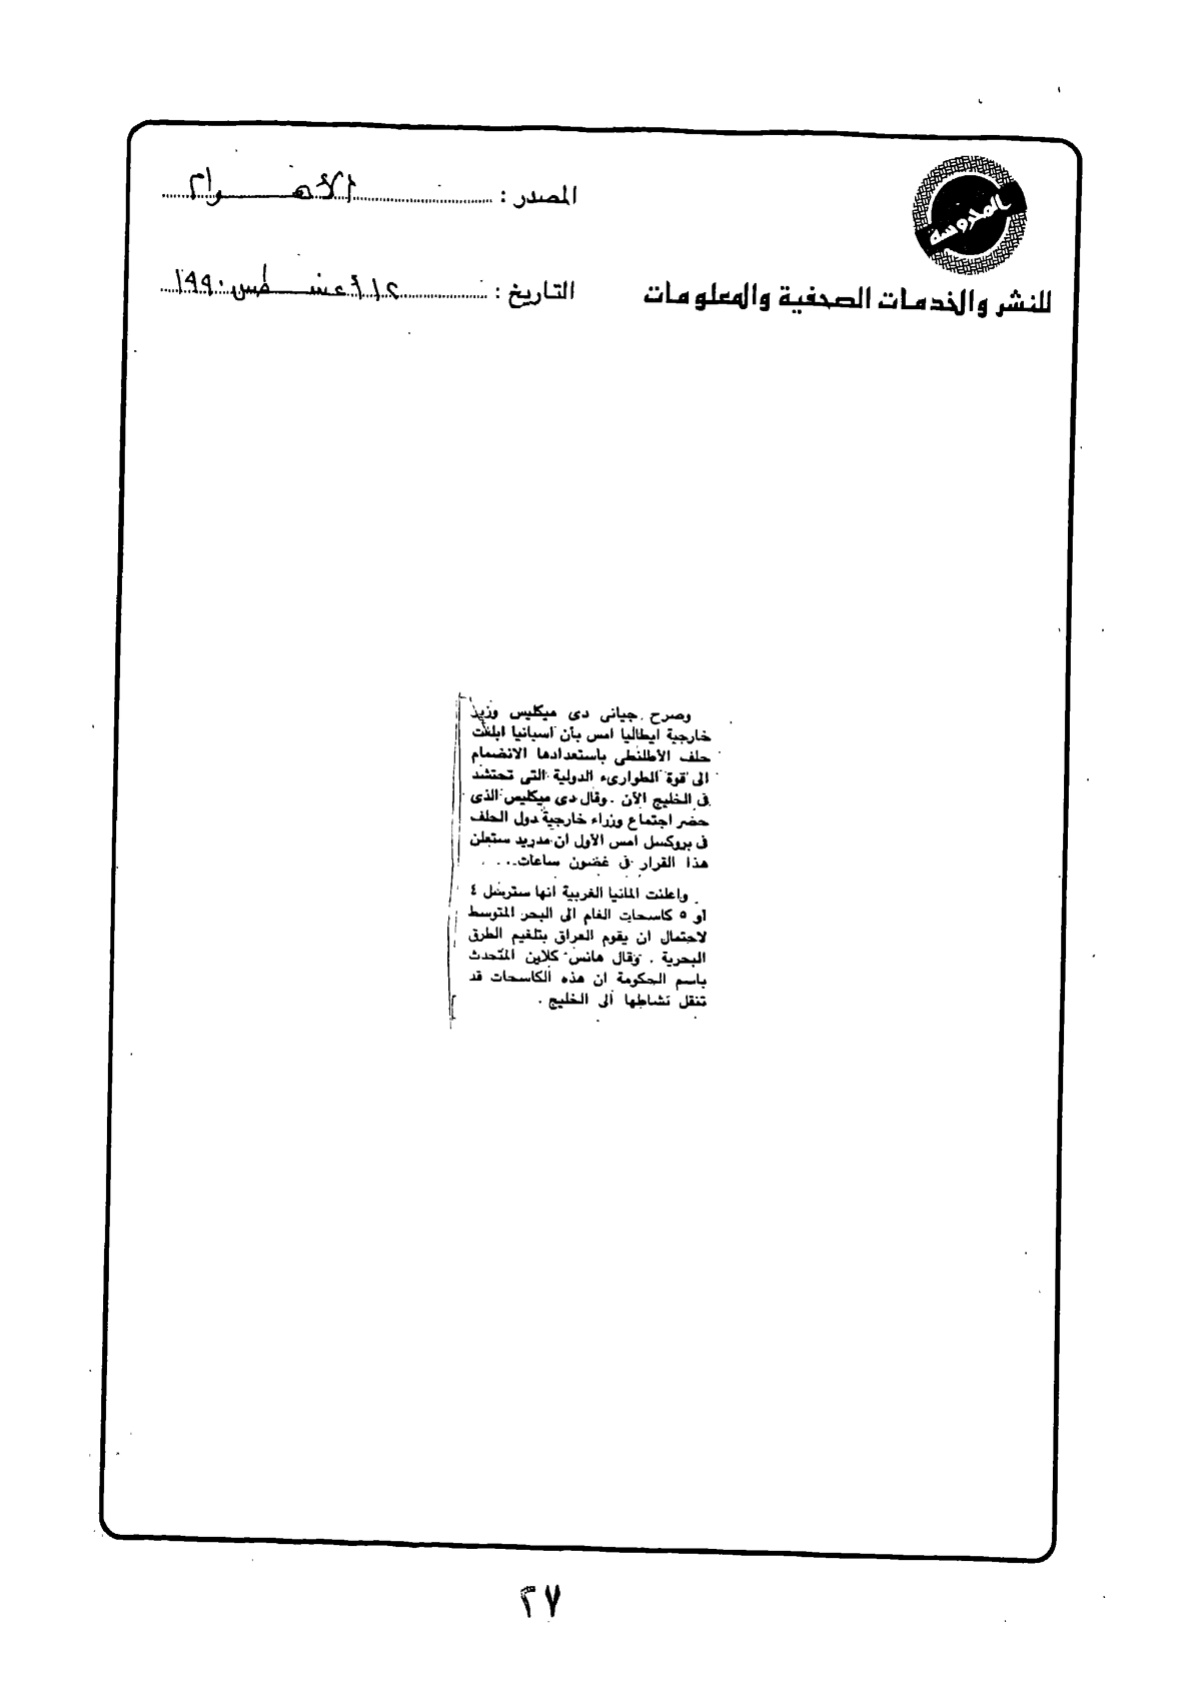 المحروسة
للنشر والخدمات الصحفية والمعلومات
المصدر : الأهرام
التاريخ : ١٢ أغسطس ١٩٩٠
وصرح جيانى دى ميكليس وزير
خارجية ايطاليا امس بأن اسبانيا ابلغت
حلف الأطلنطى باستعدادها الانضمام
الى قوة الطوارىء الدولية التى تحتشد
فى الخليج الآن . وقال دى ميكليس الذى
حضر اجتماع وزراء خارجية دول الحلف
فى بروكسل امس الأول ان مدريد ستعلن
هذا القرار فى غضون ساعات...
واعلنت المانيا الغربية انها سترسل ٤
أو ٥ كاسحات الغام الى البحر المتوسط
لاحتمال ان يقوم العراق بتلغيم الطرق
البحرية . وقال هانس كلاين المتحدث
باسم الحكومة ان هذه الكاسحات قد
تنقل نشاطها الى الخليج .
٢٧